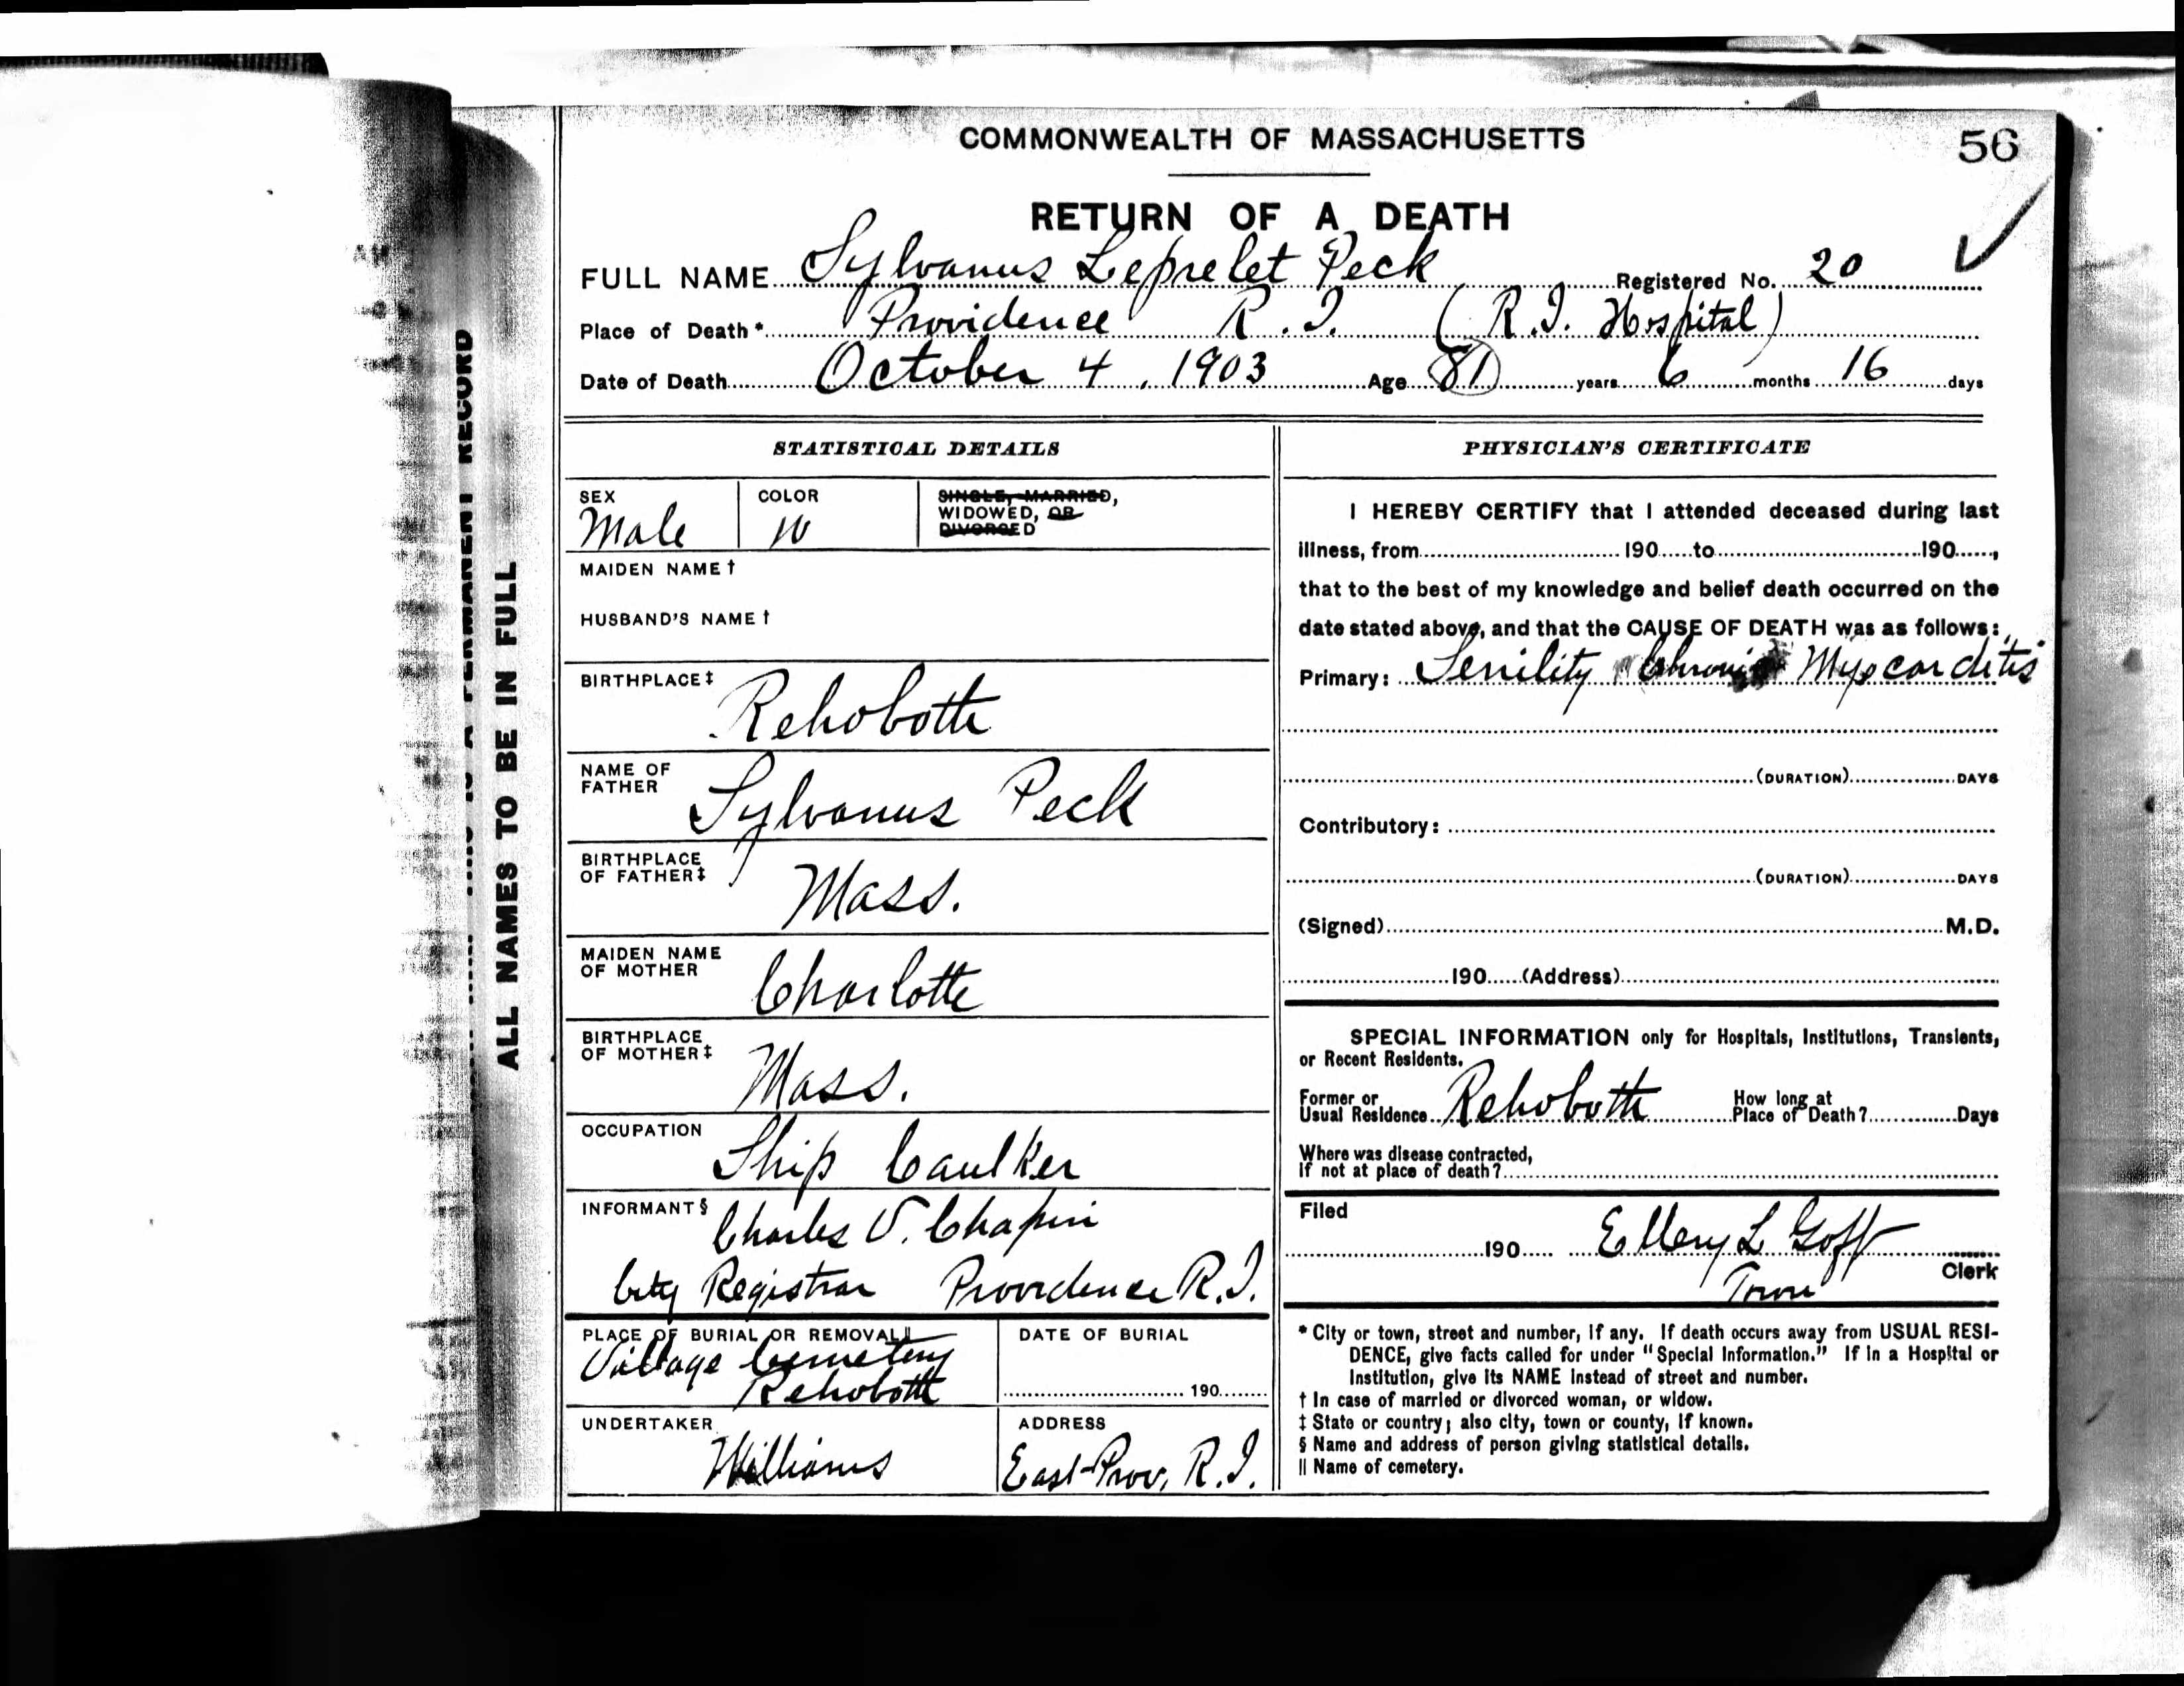 COMMONWEALTH OF MASSACHUSETTS
56
RETURN OF A DEATH
FULL NAME Sylvanus Leprelet Peck Registered No. 20
Place of Death* Providence R.I. (R.I. Hospital)
Date of Death October 4, 1903 Age 81 years 6 months 16 days
ALL NAMES TO BE IN FULL
PERMANENT RECORD
STATISTICAL DETAILS
SEX
Male
COLOR
W
SINGLE, MARRIED,
WIDOWED, OR
DIVORCED
MAIDEN NAME †
HUSBAND'S NAME †
BIRTHPLACE ‡
Rehoboth
NAME OF
FATHER
Sylvanus Peck
BIRTHPLACE
OF FATHER ‡
Mass.
MAIDEN NAME
OF MOTHER
Charlotte
BIRTHPLACE
OF MOTHER ‡
Mass.
OCCUPATION
Ship Caulker
INFORMANT §
Charles V. Chapin
City Registrar Providence R.I.
PLACE OF BURIAL OR REMOVAL ||
Village Cemetery
Rehoboth
DATE OF BURIAL
190
UNDERTAKER
Williams
ADDRESS
East Prov, R.I.
PHYSICIAN'S CERTIFICATE
I HEREBY CERTIFY that I attended deceased during last
illness, from 190 to 190 ,
that to the best of my knowledge and belief death occurred on the
date stated above, and that the CAUSE OF DEATH was as follows:
Primary: Senility Chronic Myocarditis
(DURATION) DAYS
Contributory:
(DURATION) DAYS
(Signed) M.D.
190 (Address)
SPECIAL INFORMATION only for Hospitals, Institutions, Transients,
or Recent Residents.
Former or
Usual Residence Rehoboth
How long at
Place of Death? Days
Where was disease contracted,
If not at place of death?
Filed
190 Ellery L Goff
Town Clerk
* City or town, street and number, if any. If death occurs away from USUAL RESI-
DENCE, give facts called for under "Special Information." If in a Hospital or
Institution, give its NAME instead of street and number.
† In case of married or divorced woman, or widow.
‡ State or country; also city, town or county, if known.
§ Name and address of person giving statistical details.
|| Name of cemetery.